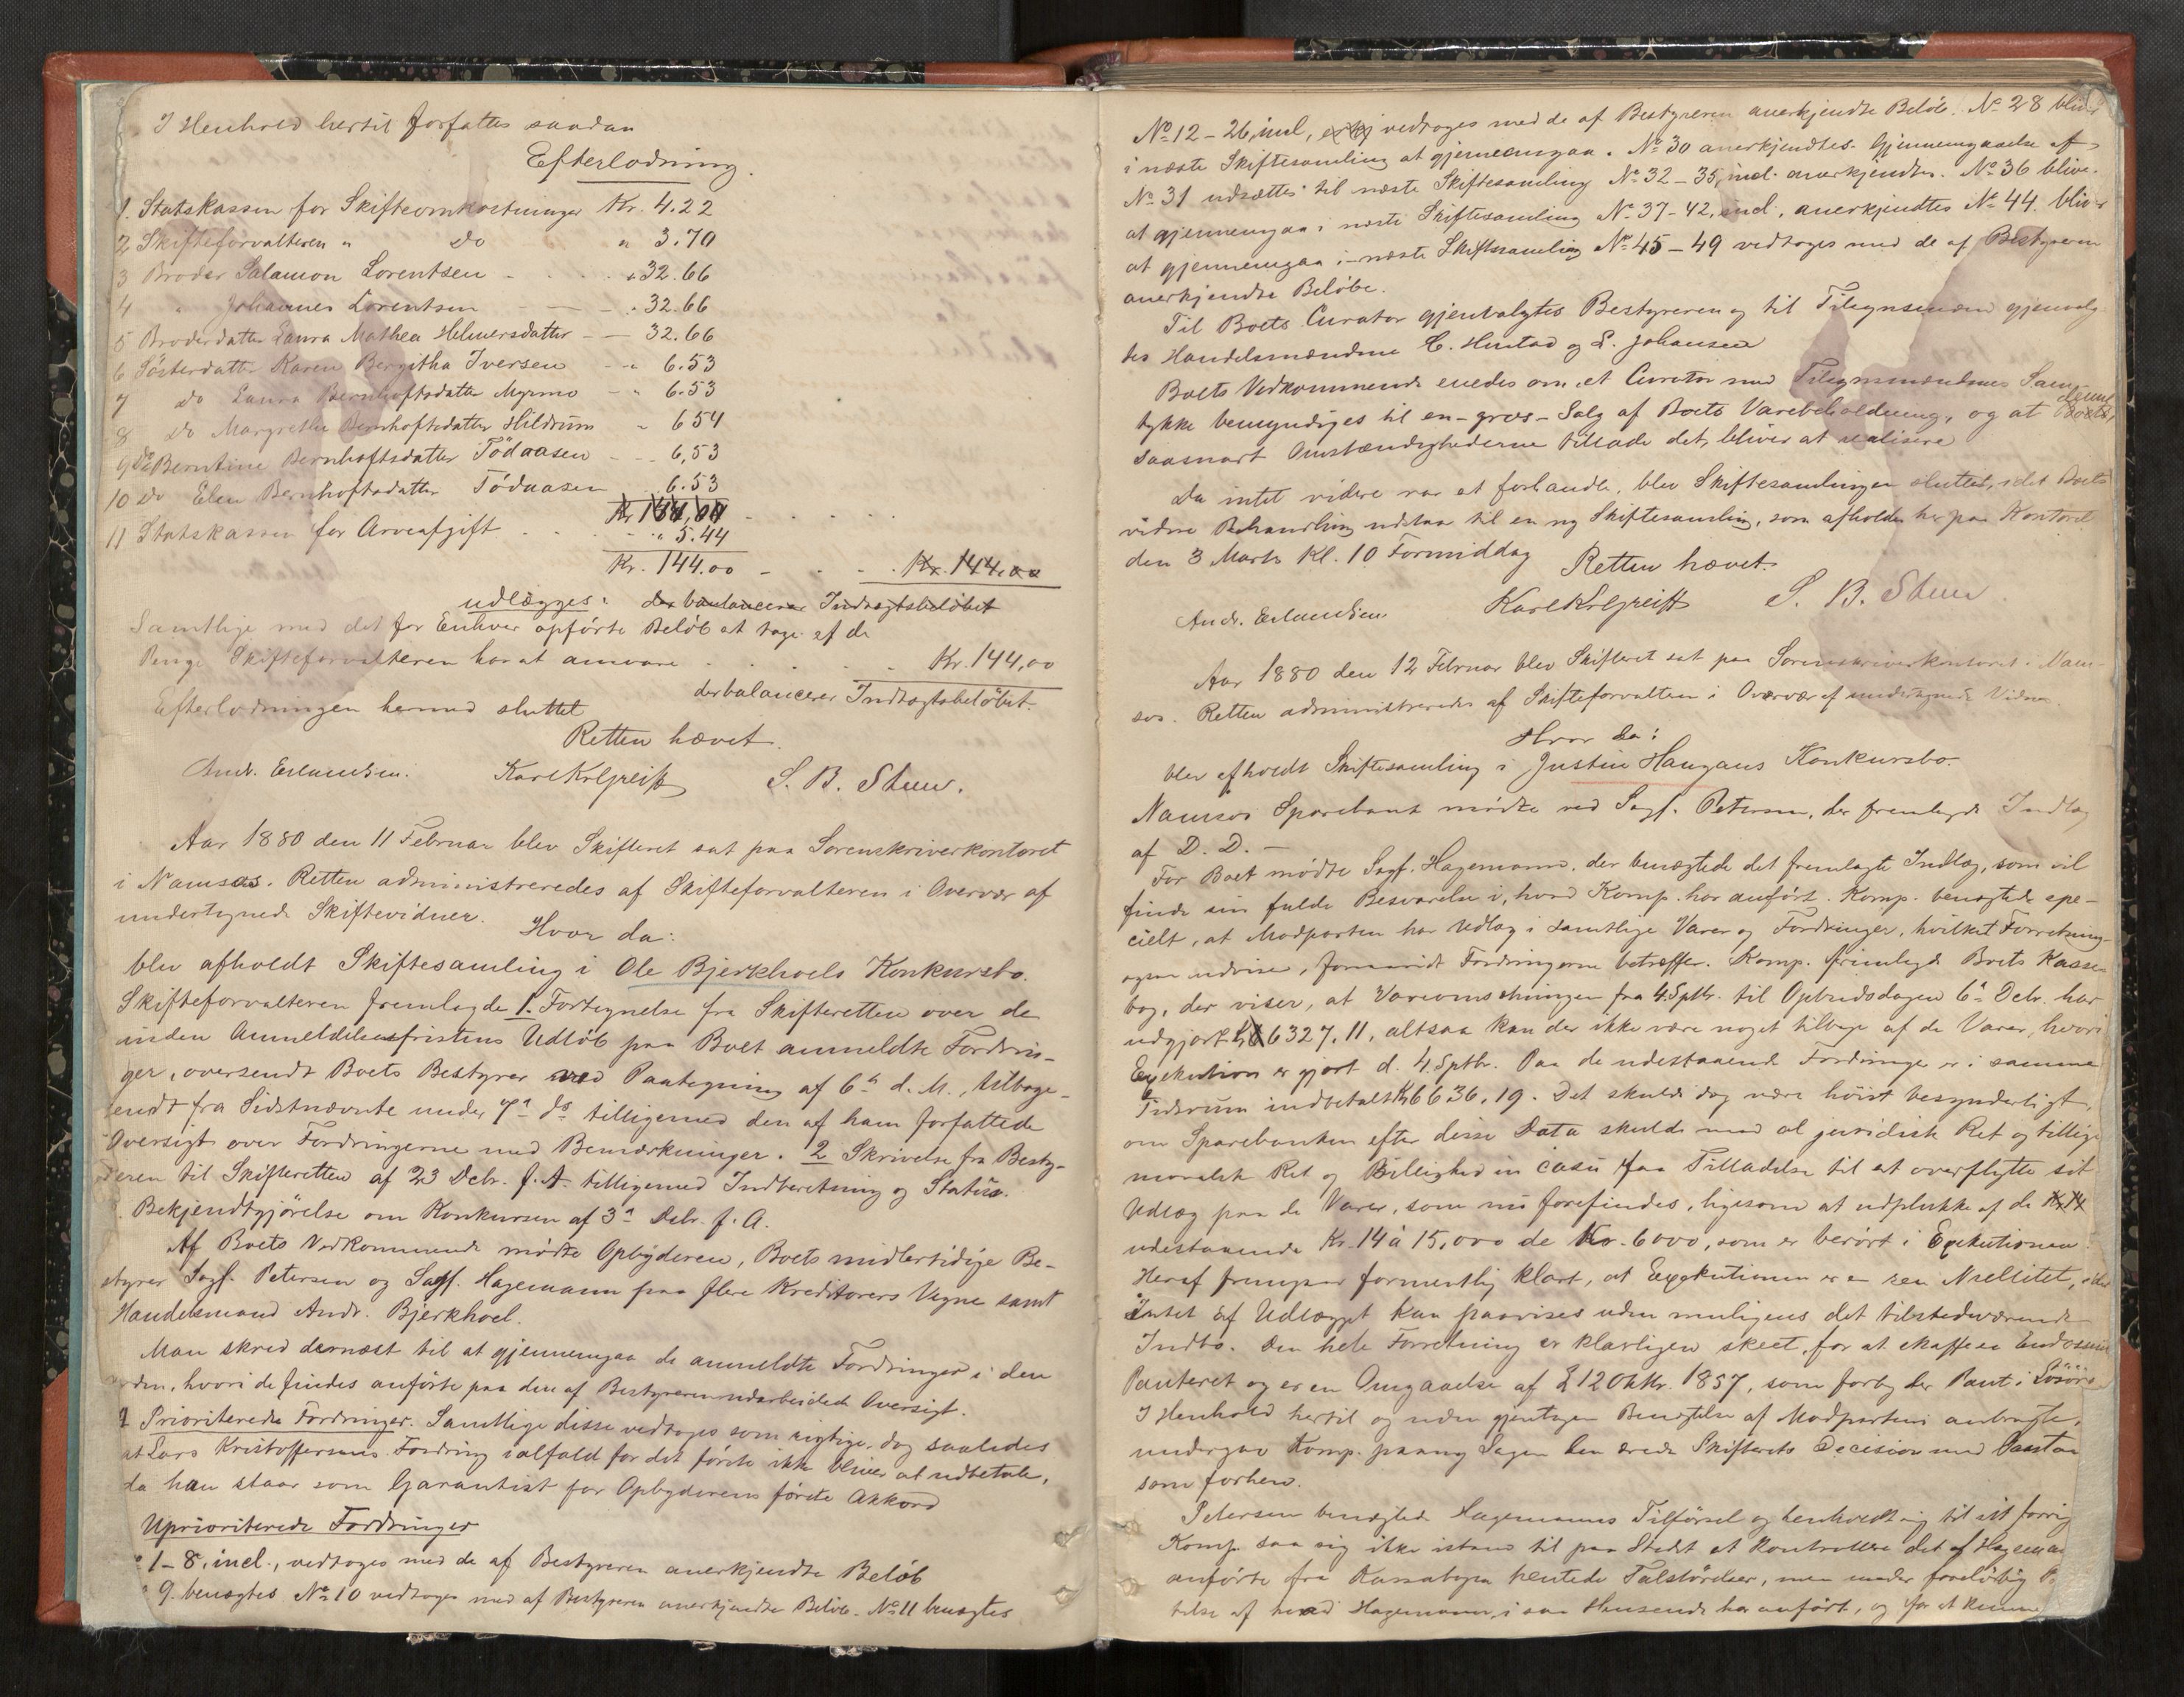 I Henhold hertil forfattes saadan
Efterlodning.
1. Statskassen for Skifteomkostninger Kr. 4.22
2 Skifteforvalteren " do " 3.70
3 Broder Salamon Lorentsen " 32.66
4 " Johannes Lorentsen " 32.66
5 Broderdatter Laura Mathea Helmersdatter 32.66
6 Søsterdatter Karen Bergitha Iversen " 6.53
7 do Laura Bernhoftsdatter Myrmo " 6.53
8 do Margrethe Bernhoftsdatter Hildrum " 6 54
9 do Berntine Bernhoftsdatter Tödaasen 6,53
10 do Elen Bernhoftsdatter Tödaasen 6.53
11 Statskassen for Arveafgift " 5.44
Kr. 144.00 Kr. 144.00
udlægges: der baulancerer Indtægtsbeløbet
Samtlige med det for Enhver opførte Beløb at tage af de
Penge Skifteforvalteren har at ansvare Kr. 144,00
der balancerer Indtægtsbeløbet.
Efterlodningen hermed sluttet
Retten hævet.
Andr. Erlandsen. Karl Kr Greiff S. B. Steen.
Aar 1880 den 11 Februar blev Skifteret sat paa Sorenskriverkontoret
i Namsos. Retten administreredes af Skifteforvalteren i Overvær af
undertegnede Skiftevidner.
Hvor da:
blev afholdt Skiftesamling i Ole Bjerkhoels Konkursbo.
Skifteforvalteren fremlagde 1. Fortegnelse fra Skifteretten over de
inden Anmeldelsesfristens Udløb paa Boet anmeldte Fordrin-
ger, oversendt Boets Bestyrer ved Paategning af 6te d. M., tilbage-
sendt fra Sidstnævnte under 7de ds tilligemed den af ham forfattede
Oversigt over Fordringerne med Bemærkninger. 2 Skrivelse fra Besty-
reren til Skifteretten af 23 Debr. f. A. tilligemed Indberetning og Status.
Bekjendtgjørelse om Konkursen af 3die Debr. f. A.
Af Boets Vedkommende mødte Opbyderen, Boets midlertidige Be-
styrer Sagf. Petersen og Sagf. Hagemann paa flere Kreditorers Vegne samt
Handelsmand Andr. Bjerkhoel.
Man skred dernæst til at gjennemgaa de anmeldte Fordringer i den
Orden, hvori de findes anførte paa den af Bestyreren udarbeidede Oversigt.
1 Prioriterede Fordringer. Samtlige disse vedtoges som rigtige, dog saaledes
at Lars Kristoffersens Fordring ialfald for det første ikke bliver at udbetale,
da han staar som Garantist for Opbyderens første Akkord
Uprioriterede Fordringer
1–8, incl., vedtoges med de af Bestyreren anerkjendte Beløb
9. benægtes No 10 vedtoges med af Bestyreren anerkjendte Beløb. No 11 benægtes
No 12–26, incl, vedtoges med de af Bestyreren anerkjendte Beløb. No 28 bliver
i næste Skiftesamling at gjennemgaa. No 30 anerkjendtes. Gjennemgaaelse af
No 31 udsættes til næste Skiftesamling No 32–35, incl. anerkjendtes. No 36 bliver
at gjennemgaa i næste Skiftesamling No 37–42, incl, anerkjendtes No 44. bliver
at gjennemgaa i næste Skiftesamling No 45–49 vedtoges med de af Bestyreren
anerkjendte Beløbe.
Til Boets Curator gjenvalgtes Bestyreren og til Tilsynsmænd gjenvalg-
tes Handelsmændene C. Hustad og L. Johansen
Boets Vedkommende enedes om, at Curator med Tilsynsmændenes Sam-
tykke bemyndiges til en-gros-Salg af Boets Varebeholdning, og at denne
saasnart Omstændighederne tillade det, bliver at realisere
Da intet videre var at forhandle, blev Skiftesamlingen sluttet, idet Boets
videre Behandling udstaar til en ny Skiftesamling, som afholdes her paa Kontoret
den 3 Marts Kl. 10 Formiddag
Retten hævet.
Andr. Erlandsen. Karl Kr Greiff S. B. Steen
Aar 1880 den 12 Februar blev Skifteret sat paa Sorenskriverkontoret i Nam-
sos. Retten administreredes af Skifteforvalteren i Overvær af undertegnede Vidner.
Hvor da:
blev afholdt Skiftesamling i Justin Haugans Konkursbo.
Namsos Sparebank mødte ved Sagf. Petersen, der fremlagde Indlæg
af D. D. –
For Boet mødte Sagf. Hagemann, der benægtede det fremlagte Indlæg, som vil
finde sin fulde Besvarelse i, hvad Komp. har anført. Komp. benægtede spe-
cielt, at Modparten har Udlæg i samtlige Varer og Fordringer, hvilket Forretning-
en udviser, forsaavidt Fordringerne betræffer. Komp. fremlagde Boets Kasse-
bog, der viser, at Vareomsætningen fra 4. Sptbr. til Opbudsdagen 6te Debr. har
udgjort 6327,11, altsaa kan der ikke være noget tilbage af de Varer, hvori
Exekution er gjort d. 4. Sptbr. Paa de udestaaende Fordringer er i samme
Tidsrum indbetalt Kr 6636,19. Det skulde dog være høist besynderligt,
om Sparebanken efter disse Data skulde med al juridisk Ret og tillige
moralsk Ret og Billighed in casu faa Tilladelse til at overflytte sit
Udlæg paa de Varer, som nu forefindes, ligesom at udplukke af de
udestaaende Kr. 14 à 15,000 de Kr. 6000, som er berørt i Exekutionen.
Heraf fremgaar formentlig klart, at Exekutionen er en ren Nullitet, idet
Intet af Udlægget kan paavises uden muligens det tilstedeværende
Indbo. Den hele Forretning er klarligen skeet, for at skaffe en Endossent
Panteret og er en Omgaaelse af L 12 Oktbr. 1857, som forbyder Pant i Løsøre
I Henhold hertil og under gjentagen Benægtelse af Modpartens anbragte,
undergav Komp. paany Sagen den ærede Skifterets Decision med Paastand
som forhen.
Petersen benægtede Hagemanns Tilførsel og henholdt sig til sit forrige
Komp. saa sig ikke istand til paa Stedet at kontrollere det af Hagemann
anførte fra Kassabogen hentede Talstørrelser, men under foreløbig
telse af hvad Hagemann i saa Henseende har anført, og for at kunne